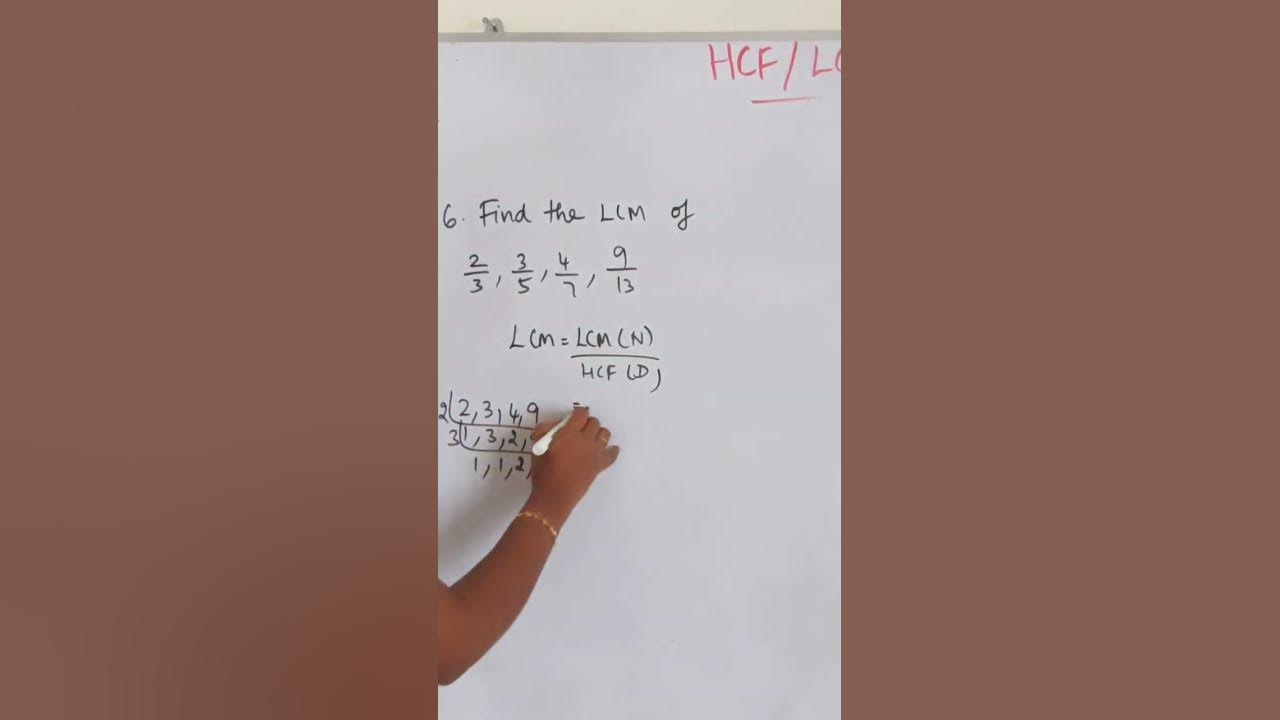 HCF/LC
6. Find the LCM of
2/3, 3/5, 4/7, 9/13
LCM = LCM(N)
HCF(D)
2 2,3,4,9 =
3 1,3,2,
1,1,2,